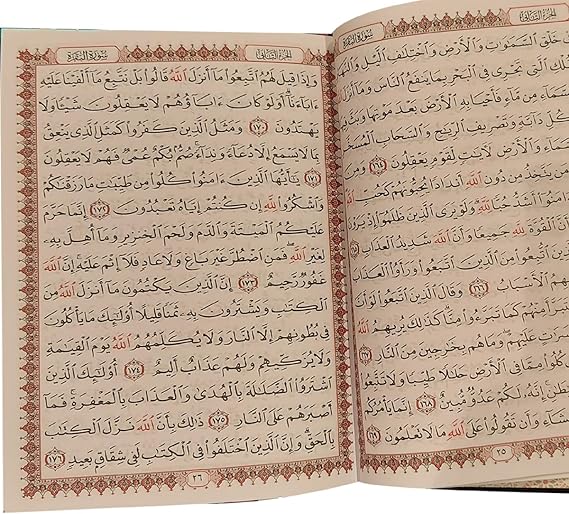 الجزء الثاني سورة البقرة
خَلْقِ السَّمَوَٰتِ وَالْأَرْضِ وَاخْتِلَٰفِ الَّيْلِ وَالنَّهَارِ
الَّتِي تَجْرِي فِي الْبَحْرِ بِمَا يَنفَعُ النَّاسَ وَمَا أَنزَلَ
مِن مَّاءٍ فَأَحْيَا بِهِ الْأَرْضَ بَعْدَ مَوْتِهَا وَبَثَّ فِيهَا
كُلِّ دَابَّةٍ وَتَصْرِيفِ الرِّيَٰحِ وَالسَّحَابِ الْمُسَخَّرِ
وَالْأَرْضِ لَءَايَٰتٍ لِّقَوْمٍ يَعْقِلُونَ ١٦٤ وَمِنَ
مَن يَتَّخِذُ مِن دُونِ اللَّهِ أَندَادًا يُحِبُّونَهُمْ كَحُبِّ اللَّهِ
أَشَدُّ حُبًّا لِّلَّهِ وَلَوْ يَرَى الَّذِينَ ظَلَمُوا إِذْ يَرَوْنَ
الْقُوَّةَ لِلَّهِ جَمِيعًا وَأَنَّ اللَّهَ شَدِيدُ الْعَذَابِ ١٦٥
اتُّبِعُوا مِنَ الَّذِينَ اتَّبَعُوا وَرَأَوُا الْعَذَابَ
بِهِمُ الْأَسْبَابُ ١٦٦ وَقَالَ الَّذِينَ اتَّبَعُوا لَوْ أَنَّ
مِنْهُمْ كَمَا تَبَرَّءُوا مِنَّا كَذَٰلِكَ يُرِيهِمُ اللَّهُ
عَلَيْهِمْ وَمَا هُم بِخَٰرِجِينَ مِنَ النَّارِ ١٦٧
كُلُوا مِمَّا فِي الْأَرْضِ حَلَٰلًا طَيِّبًا وَلَا تَتَّبِعُوا
إِنَّهُ لَكُمْ عَدُوٌّ مُّبِينٌ ١٦٨ إِنَّمَا يَأْمُرُكُم
وَأَن تَقُولُوا عَلَى اللَّهِ مَا لَا تَعْلَمُونَ ١٦٩
٢٥
الجزء الثاني سورة البقرة
وَإِذَا قِيلَ لَهُمُ اتَّبِعُوا مَا أَنزَلَ اللَّهُ قَالُوا بَلْ نَتَّبِعُ مَا أَلْفَيْنَا عَلَيْهِ
ءَابَاءَنَا أَوَلَوْ كَانَ ءَابَاؤُهُمْ لَا يَعْقِلُونَ شَيْئًا وَلَا
يَهْتَدُونَ ١٧٠ وَمَثَلُ الَّذِينَ كَفَرُوا كَمَثَلِ الَّذِي يَنْعِقُ
بِمَا لَا يَسْمَعُ إِلَّا دُعَاءً وَنِدَاءً صُمٌّ بُكْمٌ عُمْيٌ فَهُمْ لَا يَعْقِلُونَ
١٧١ يَٰأَيُّهَا الَّذِينَ ءَامَنُوا كُلُوا مِن طَيِّبَٰتِ مَا رَزَقْنَٰكُمْ
وَاشْكُرُوا لِلَّهِ إِن كُنتُمْ إِيَّاهُ تَعْبُدُونَ ١٧٢ إِنَّمَا حَرَّمَ
عَلَيْكُمُ الْمَيْتَةَ وَالدَّمَ وَلَحْمَ الْخِنزِيرِ وَمَا أُهِلَّ بِهِ
لِغَيْرِ اللَّهِ فَمَنِ اضْطُرَّ غَيْرَ بَاغٍ وَلَا عَادٍ فَلَا إِثْمَ عَلَيْهِ إِنَّ اللَّهَ
غَفُورٌ رَّحِيمٌ ١٧٣ إِنَّ الَّذِينَ يَكْتُمُونَ مَا أَنزَلَ اللَّهُ مِنَ
الْكِتَٰبِ وَيَشْتَرُونَ بِهِ ثَمَنًا قَلِيلًا أُولَٰئِكَ مَا يَأْكُلُونَ
فِي بُطُونِهِمْ إِلَّا النَّارَ وَلَا يُكَلِّمُهُمُ اللَّهُ يَوْمَ الْقِيَٰمَةِ
وَلَا يُزَكِّيهِمْ وَلَهُمْ عَذَابٌ أَلِيمٌ ١٧٤ أُولَٰئِكَ الَّذِينَ
اشْتَرَوُا الضَّلَٰلَةَ بِالْهُدَىٰ وَالْعَذَابَ بِالْمَغْفِرَةِ فَمَا
أَصْبَرَهُمْ عَلَى النَّارِ ١٧٥ ذَٰلِكَ بِأَنَّ اللَّهَ نَزَّلَ الْكِتَٰبَ
بِالْحَقِّ وَإِنَّ الَّذِينَ اخْتَلَفُوا فِي الْكِتَٰبِ لَفِي شِقَاقٍ بَعِيدٍ ١٧٦
٢٦